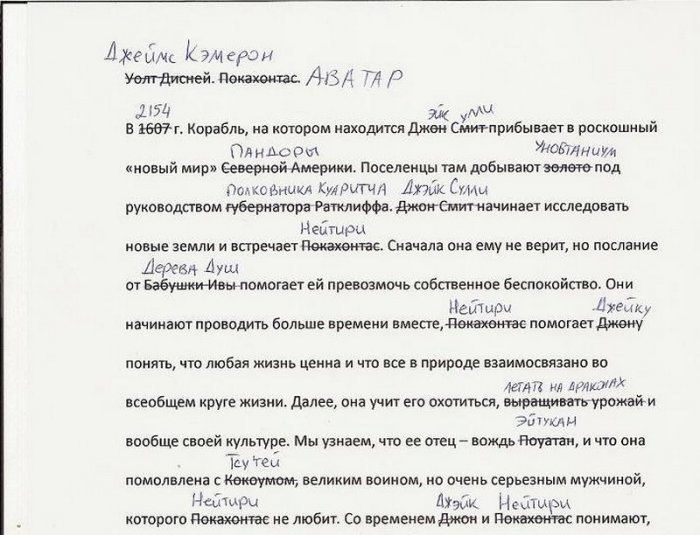 Джеймс Кэмерон
Уолт Дисней. Покахонтас. АВАТАР
2154 эйк улли
В 1607 г. Корабль, на котором находится Джон Смит прибывает в роскошный
ПАНДОРЫ УНОВТАНИУМ
«новый мир» Северной Америки. Поселенцы там добывают золото под
ПОЛКОВНИКА КУАРИТЧА ДЖЭЙК СУЛЛИ
руководством губернатора Ратклиффа. Джон Смит начинает исследовать
НЕЙТИРИ
новые земли и встречает Покахонтас. Сначала она ему не верит, но послание
Дерева Душ
от Бабушки Ивы помогает ей превозмочь собственное беспокойство. Они
Нейтири Джейку
начинают проводить больше времени вместе, Покахонтас помогает Джону
понять, что любая жизнь ценна и что все в природе взаимосвязано во
ЛЕТАТЬ НА ДРАКОНАХ
всеобщем круге жизни. Далее, она учит его охотиться, выращивать урожай и
ЭЙТУКАН
вообще своей культуре. Мы узнаем, что ее отец – вождь Поуатан, и что она
Тсу'тей
помолвлена с Кокоумом, великим воином, но очень серьезным мужчиной,
Нейтири Джэйк Нейтири
которого Покахонтас не любит. Со временем Джон и Покахонтас понимают,